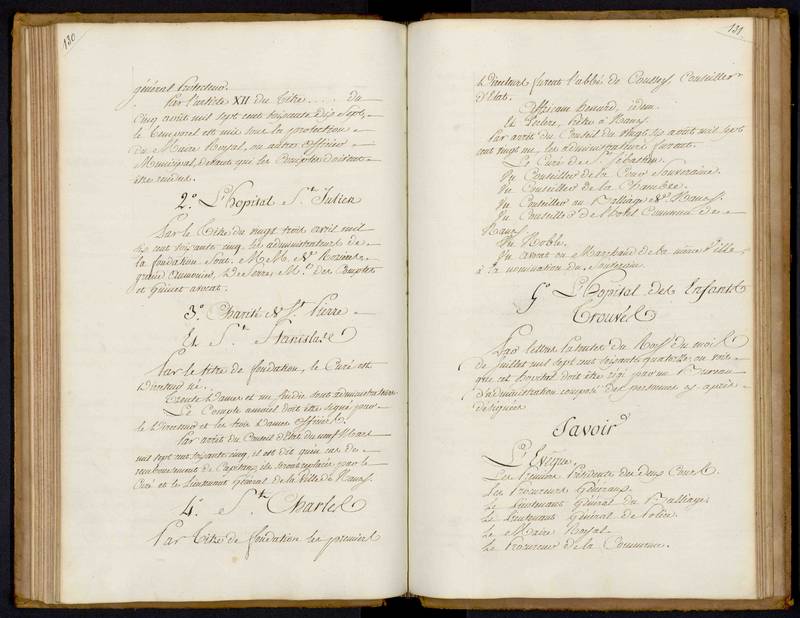 130
général Protecteur.
Par l'article XII du Titre ..... du
cinq avril mil sept cent soixante dix sept,
le temporel est mis sous la protection
du Maire Royal, ou autres officiers
Municipal, devant qui les Comptes doivent
être rendus.
2.° L'hopital St. Julien
Par le titre du vingt trois avril mil
six cent soixante cinq, les administrateurs de
la fondation sont. M. M. de
grand aumonier, de Serre, M.e des Comptes
et Guinet avocat.
3.° Charité de St. Pierre
Et St. Stanislas
Par le titre de fondation, le Curé est
Directeur né.
Trente Dames et un Sindic sont administrateurs.
Le Compte annuel doit être signé par
le Directeur et les trois Dames officieres.
Par arrêt du Conseil d'Etat du neuf Mars
mil sept cent soixante cinq, il est dit qu'en cas de
remboursement de Capitaux, ils seront replacés par le
Curé et le Lieutenant Général de la Ville de Nancy.
4.° St. Charles
Par Titre de fondation les premiers
131
Directeurs furent l'abbé de Conseiller
d'Etat.
henard, idem.
Et Prêtre à Nancy.
Par arrêt du Conseil du vingt six août mil sept
cent vingt un, les administrateurs furent.
Le Curé de St. Sebastien.
Un Conseiller de la Cour Souveraine.
Un Conseiller de la Chambre.
Un Conseiller au Balliage de Nancy.
Un Conseiller de l'hotel Commun de
Nancy.
Un Noble.
Un avocat ou Marchand de la même Ville,
à la nomination du Souverain.
5.° L'hopital des Enfants
Trouvés
Par lettres Patentes du Roy du mois
de juillet mil sept cent soixante quatorze, on voit
que cet hopital doit être régi par un Bureau
d'administration composé des personnes cy après
désignées
Savoir
L'Evêque.
Les Premiers Présidents des deux Cours.
Les Procureurs Généraux.
Le Lieutenant Général du Balliage.
Le Lieutenant Général de Police.
Le Maire Royal.
Le Procureur de la Commune.